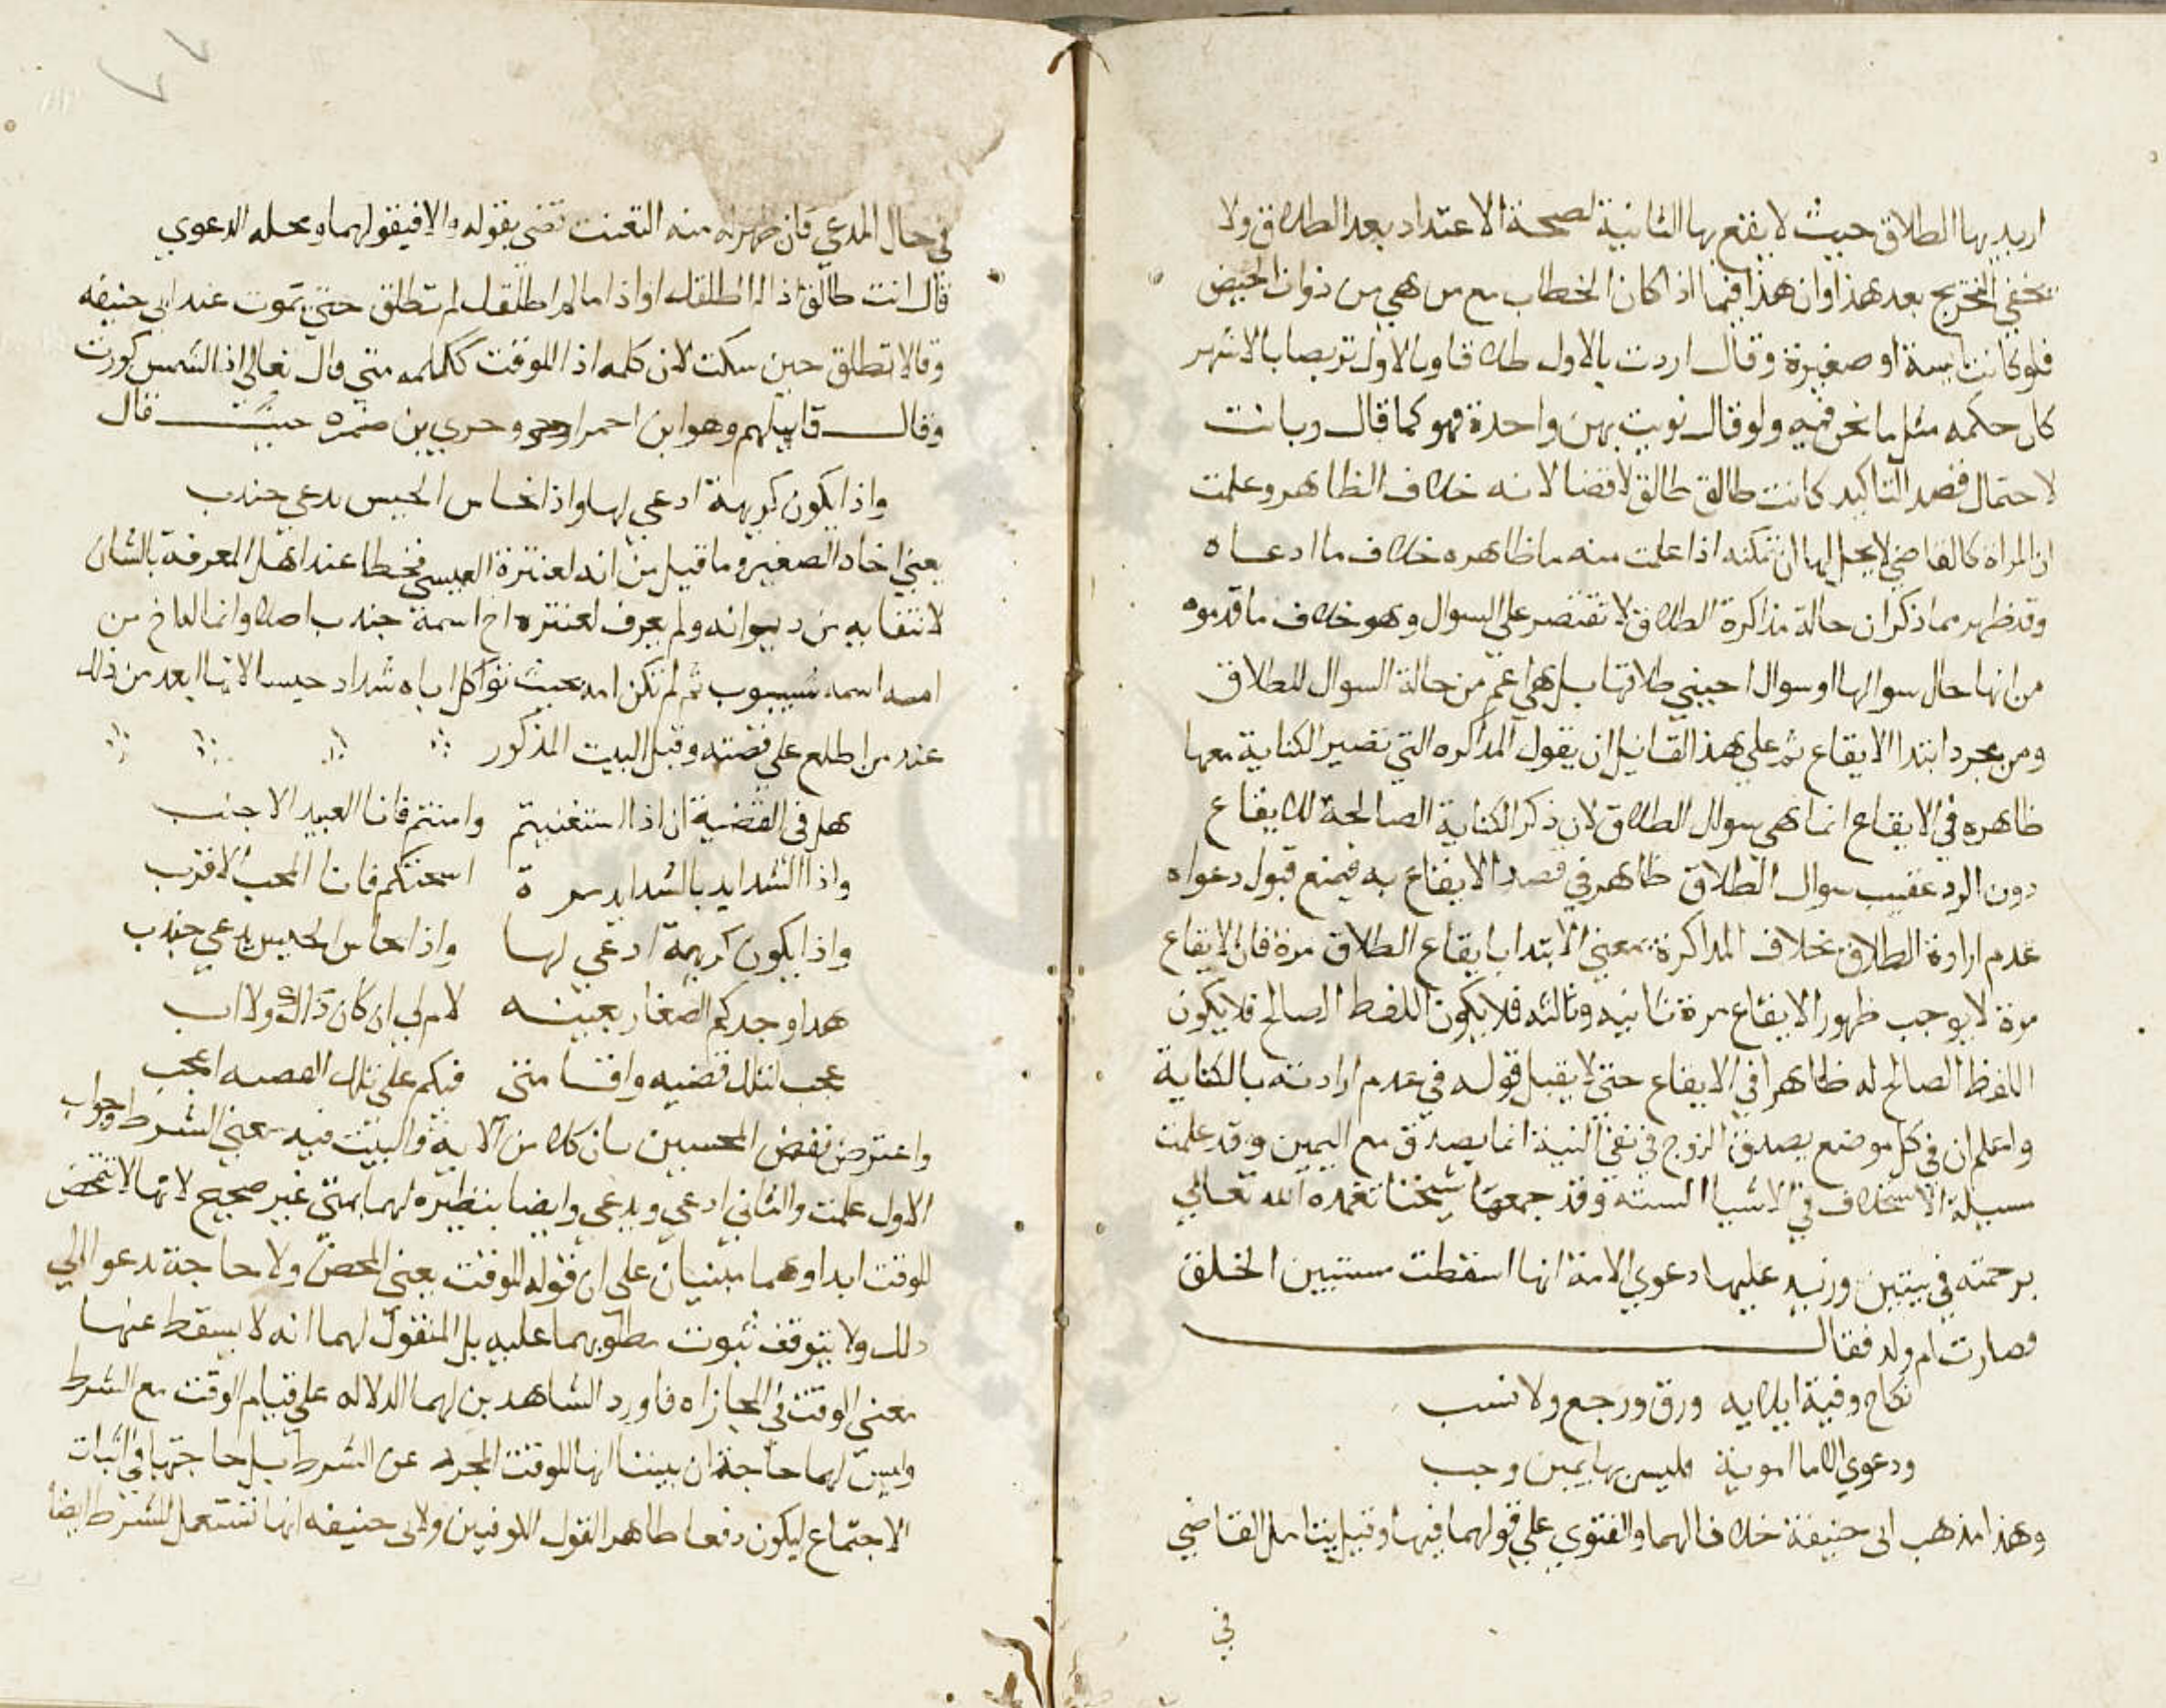 اريد بها الطلاق حيث لا يقع بها الثانية لصحة الاعتداد بعد الطلاق ولا
يخفى التخريج بعد هذا وان هذا فيما اذا كان الخطاب مع من هي من ذوات الحيض
فلو كانت ايسة او صغيرة وقال اردت بالاول طلاقا وبالاول تربصا بالاشهر
كان حكمه مثل ما نحن فيه ولو قال نويت بهن واحدة فهو كما قال ديانت
لاحتمال قصد التاكيد كانت طالق طالق لا قضا لانه خلاف الظاهر وعلمت
ان المراه كالقاضي لا يحل لها ان تمكنه اذا علمت منه ما ظاهره خلاف ما ادعاه
وقد ظهر مما ذكر ان حالة مذاكرة الطلاق لا تقتصر علي السوال وهو خلاف ما قدموه
من انها حال سوالها او سوال اجنبي طلاقها بل هي اعم من حالة السوال للطلاق
ومن مجرد ابتدا الايقاع ثم علي هذ القائيل ان يقول المذاكره التي تصير الكناية معها
ظاهره في الايقاع انما هي سوال الطلاق لان ذكر الكناية الصالحة للايقاع
دون الرد عقيب سوال الطلاق ظاهر في قصد الايقاع به فيمنع قبول دعواه
عدم ارادة الطلاق بخلاف المذاكرة بمعني الابتدا بايقاع الطلاق مرة فان الايقاع
مرة لا يوجب ظهور الايقاع مرة ثانيه وثالثه فلا يكون اللفظ الصالح فلا يكون
اللفظ الصالح له ظاهرا في الايقاع حتي لا يقبل قوله في عدم ارادته بالكناية
واعلم ان في كل موضع يصدق الزوج في نفي النية انما يصدق مع اليمين وقد علمت
مسيلة الاستحلاف في الاشيا الستة وقد جمعها شيخنا تغمده الله تعالي
برحمته في بيتين وزيد عليها دعوي الامة انها اسقطت مستبين الخلق
فصارت ام ولد فقال
نكاح وفية ايلايه   ورق ورجع ولا نسب
ودعوي الاما اموية   فليس بها يمين وجب
وهذا مذهب ابي حنيفة خلافا لهما والفتوي علي قولهما فيها وقيل يتامل القاضي
في
في حال المدعي فان ظهر له منه التعنت قضي بقوله والا فيقولهما ومحله الدعوي
قال انت طالق اذا لم اطلقك او اذا ما لم اطلقك لم تطلق حتي تموت عند ابي حنيفه
وقالا تطلق حين سكت لان كلمه اذا للوقت ككلمه متي قال تعالي اذا الشمس كورت
وقال قايلهم وهو ابن احمر او حري بن ضمره حيث قال
واذا يكون كريهة ادعي لها واذا يحاس الحيس يدعي جندب
يعني اخاه الصغير وما قيل من انه لعنترة العبسي فخطا عند اهل المعرفة بالشان
لانتفايه من ديوانه ولم يعرف لعنتره اخ اسمة جندب اصلا وانما له اخ من
امه اسمه شيبوب ثم لم تكن امه بحيث تواكل اباه شداد حيسا الا ما ابعد من ذلك
عند من اطلع علي قصته وقبل البيت المذكور
هل في القضية ان اذا استغنيتم   وامنتم فانا العبيد الاجنب
واذا الشدايد بالشدايد مرة   اسحنتكم فانا المحب الاقرب
واذا يكون كريهة ادعي لها   واذا يحاس الحيس يدعي جندب
هذا وجدكم الصغار بعينه   لا ام لي ان كان ذاك ولا اب
عجب لتلك قضيه واقامتي   فيكم على تلك القصيه اعجب
واعترض بعض المحسبين بان كلا من الاية والبيت فيه معني الشرط وجواب
الاول علمت والثاني ادعي ويدعي وايضا بنظيره لهما بمتي غير صحيح لانها لا تتمحض
للوقت ابدا وهما مبنيان على ان قوله للوقت يعني المحض ولا حاجة تدعو الي
ذلك ولا يتوقف ثبوت مطلوبهما عليه بل المنقول لهما انه لا يسقط عنها
معني الوقت في المجازاه فاورد الشاهدين لهما الدلاله علي قيام الوقت مع الشرط
وليس لهما حاجة ان يبينا انها للوقت المجرد عن الشرط بل حاجتهما في اثبات
الاجتماع ليكون دفعا ظاهر القول الكوفيين ولابي حنيفه انها تستعمل للشرط ايضا